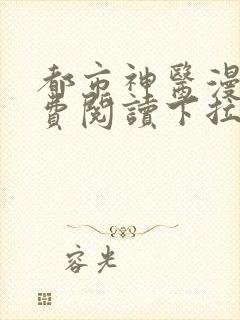 都市神醫漫
費閱讀下拉
容光